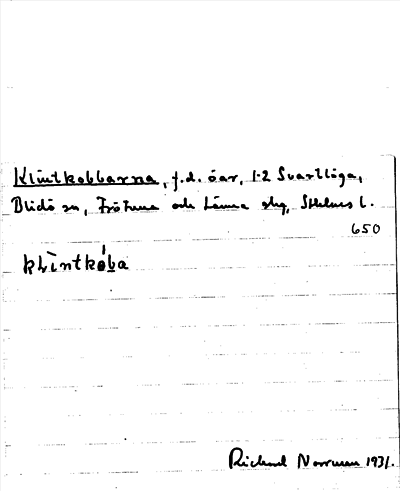 Klintkobbarna, f.d. öar, 1-2 Svartlöga,
Blidö sn, Frötuna och Länna skg, Sthlms l.
650
klìntkóba
Richard Norrman 1931.